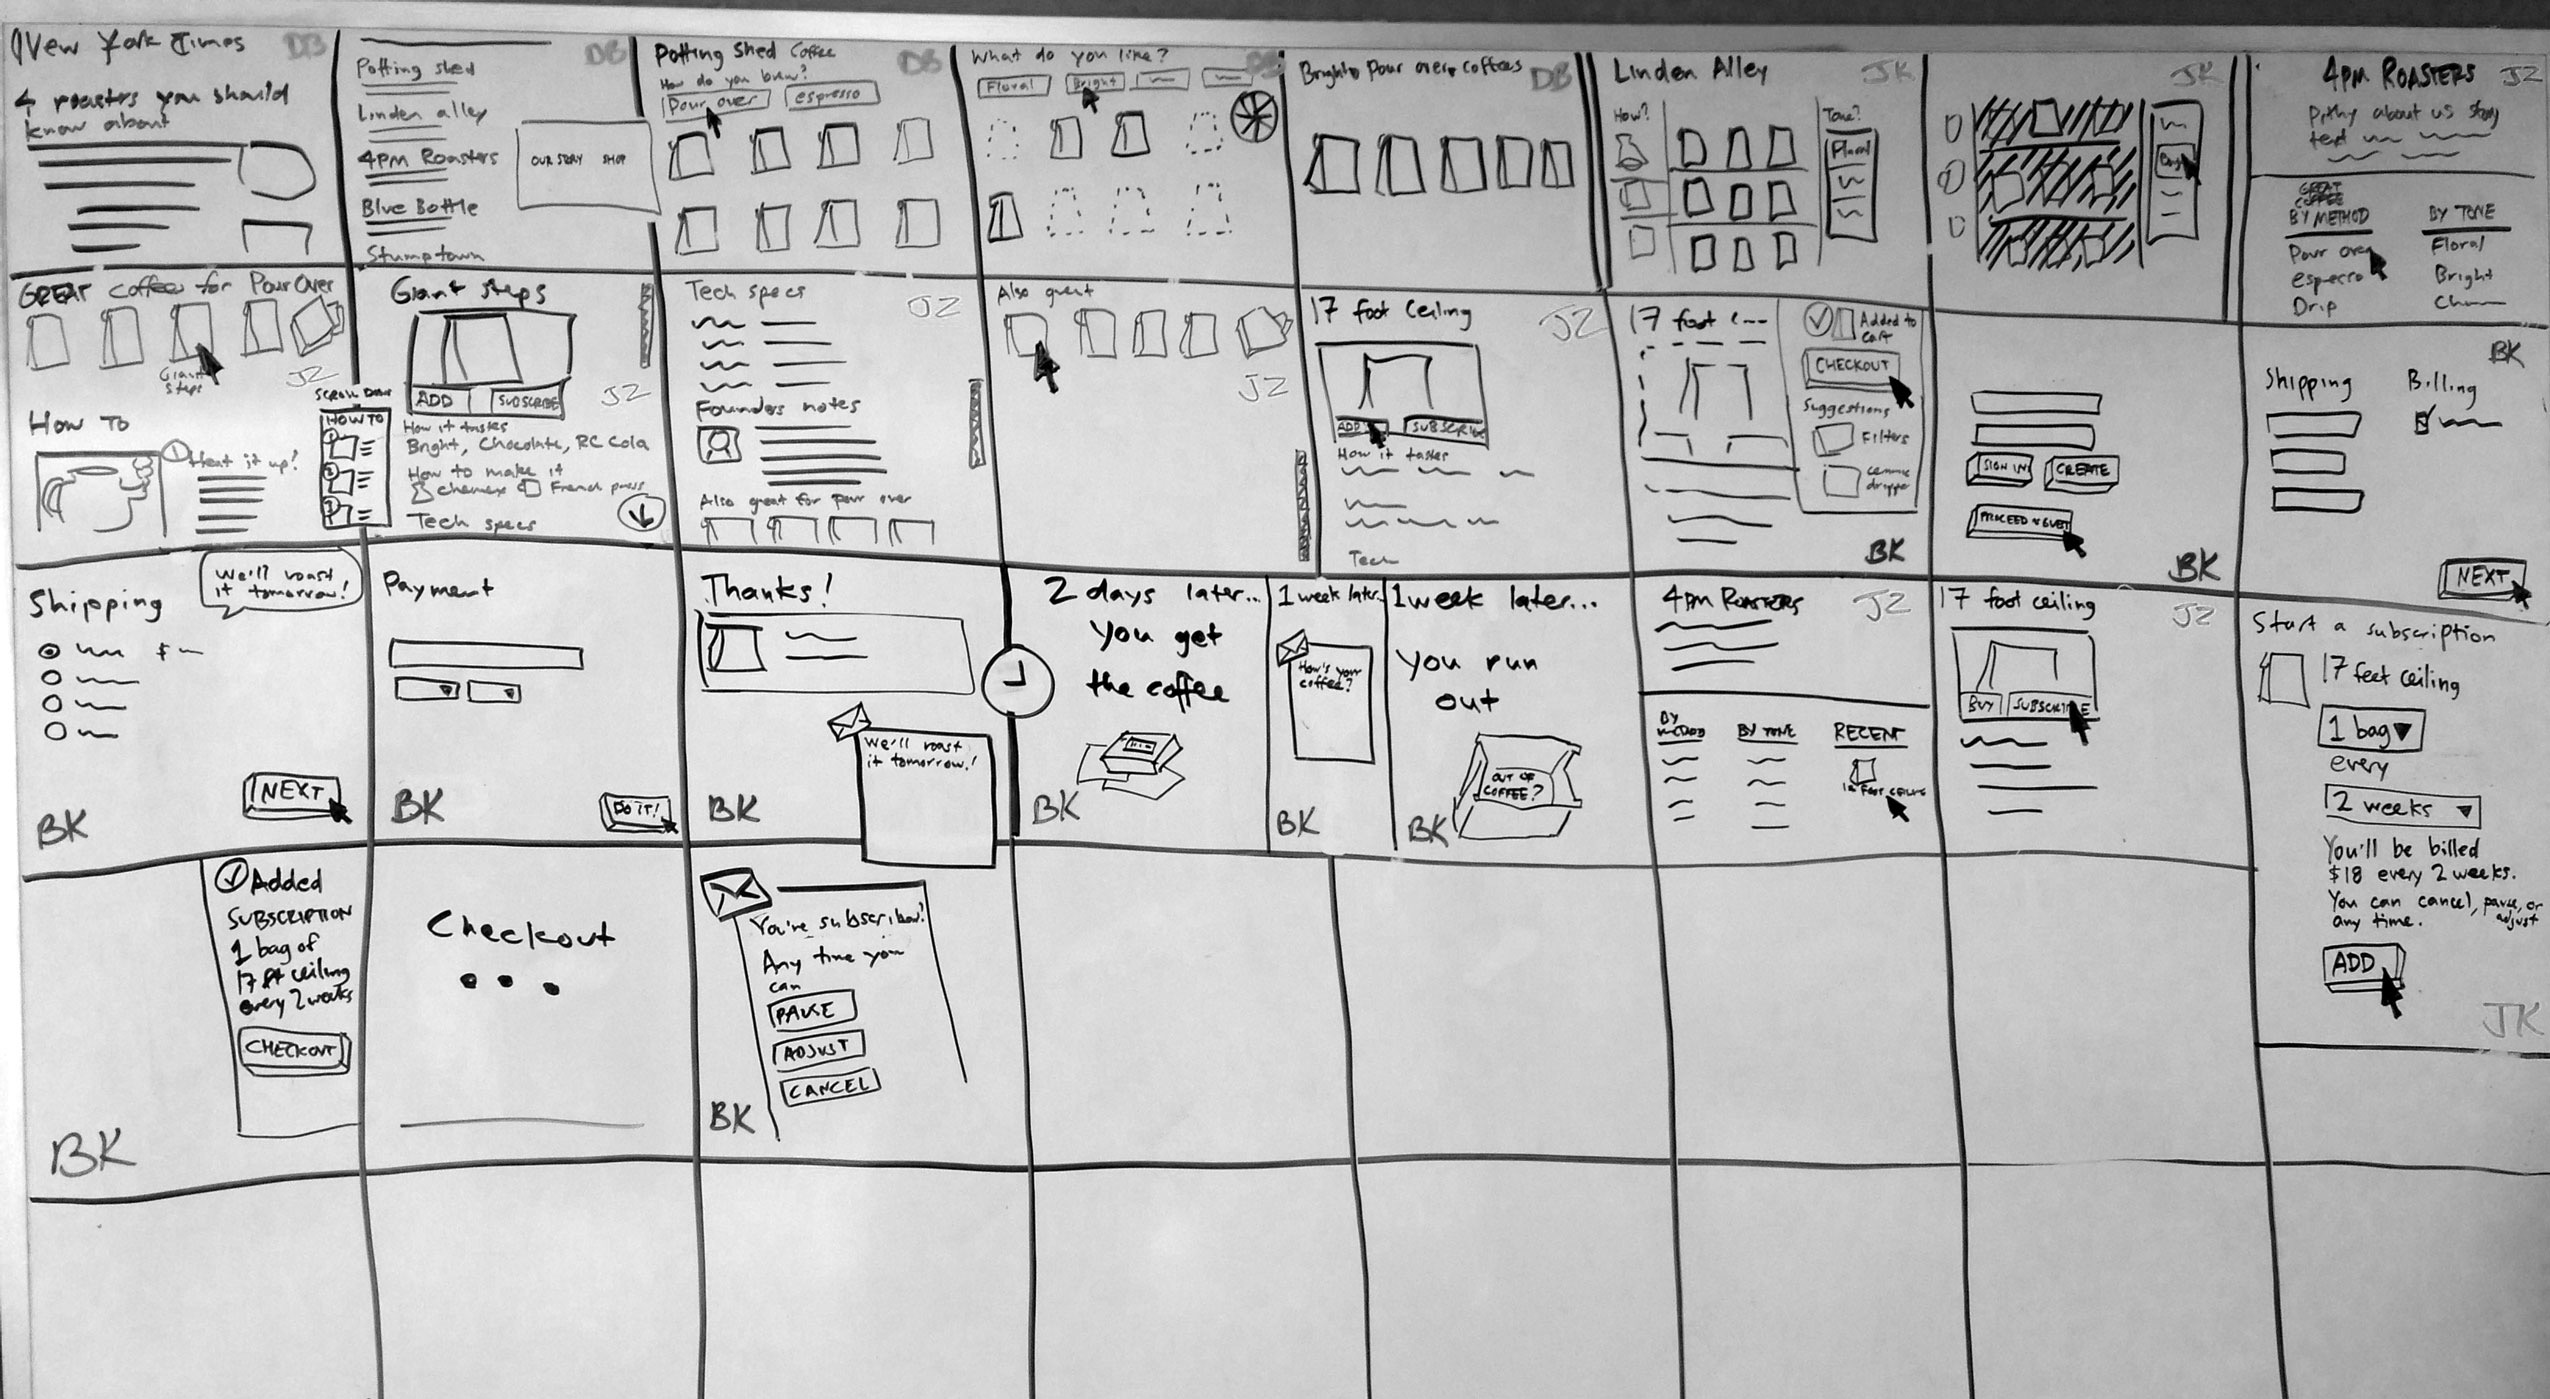 New York Times
DB
4 roasters you should
know about
DB
Potting shed
Linden alley
4PM Roasters
Blue Bottle
Stumptown
OUR STORY SHOP
Potting Shed Coffee
DB
How do you brew?
Pour over
espresso
What do you like?
DB
Floral
Bright
Bright, Pour over coffees
DB
Linden Alley
JK
How?
Tone?
Floral
JK
4PM ROASTERS
JZ
Pithy about us story
text
GREAT
COFFEE
BY METHOD
BY TONE
Pour over
Floral
espresso
Bright
Drip
GREAT coffee for Pour Over
Giant
steps
JZ
How To
1 Heat it up!
SCROLL DOWN
HOW TO
1
2
3
Giant steps
ADD
SUBSCRIBE
JZ
How it tastes
Bright, Chocolate, RC Cola
How to make it
Chemex
French press
Tech specs
Tech specs
JZ
Founders notes
Also great for pour over
Also great
JZ
17 foot ceiling
JZ
ADD
SUBSCRIBE
How it tastes
Tech
17 foot c---
Added to
cart
CHECKOUT
Suggestions
Filters
ceramic
dripper
BK
SIGN IN
CREATE
PROCEED AS GUEST
BK
BK
Shipping
Billing
NEXT
Shipping
We'll roast
it tomorrow!
$
NEXT
BK
Payment
BK
DO IT!
Thanks!
We'll roast
it tomorrow!
BK
2 days later...
You get
the coffee
BK
1 week later..
How's your
coffee?
BK
1 week later...
You run
out
OUT OF
COFFEE?
BK
4PM ROASTERS
JZ
BY
METHOD
BY TONE
RECENT
17 FOOT CEILING
17 foot ceiling
JZ
BUY
SUBSCRIBE
Start a subscription
17 feet ceiling
1 bag
every
2 weeks
You'll be billed
$18 every 2 weeks.
You can cancel, pause, or
adjust
any time.
ADD
JK
Added
SUBSCRIPTION
1 bag of
17 ft ceiling
every 2 weeks
CHECKOUT
BK
Checkout
...
You're subscribed!
Any time you
can
PAUSE
ADJUST
CANCEL
BK